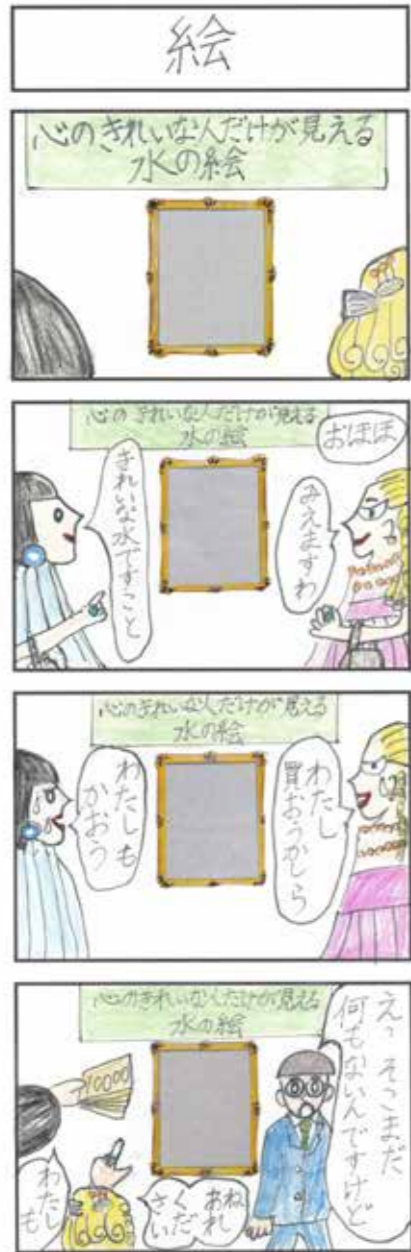 絵
心のきれいな人だけが見える
水の絵
心のきれいな人だけが見える
水の絵
おほほ
みえますわ
きれいな水ですこと
心のきれいな人だけが見える
水の絵
わたし
買おうかしら
わたしも
かおう
心のきれいな人だけが見える
水の絵
えっ そこまだ
何もないんですけど
あれ
くだ
さい
10000
わたし
も